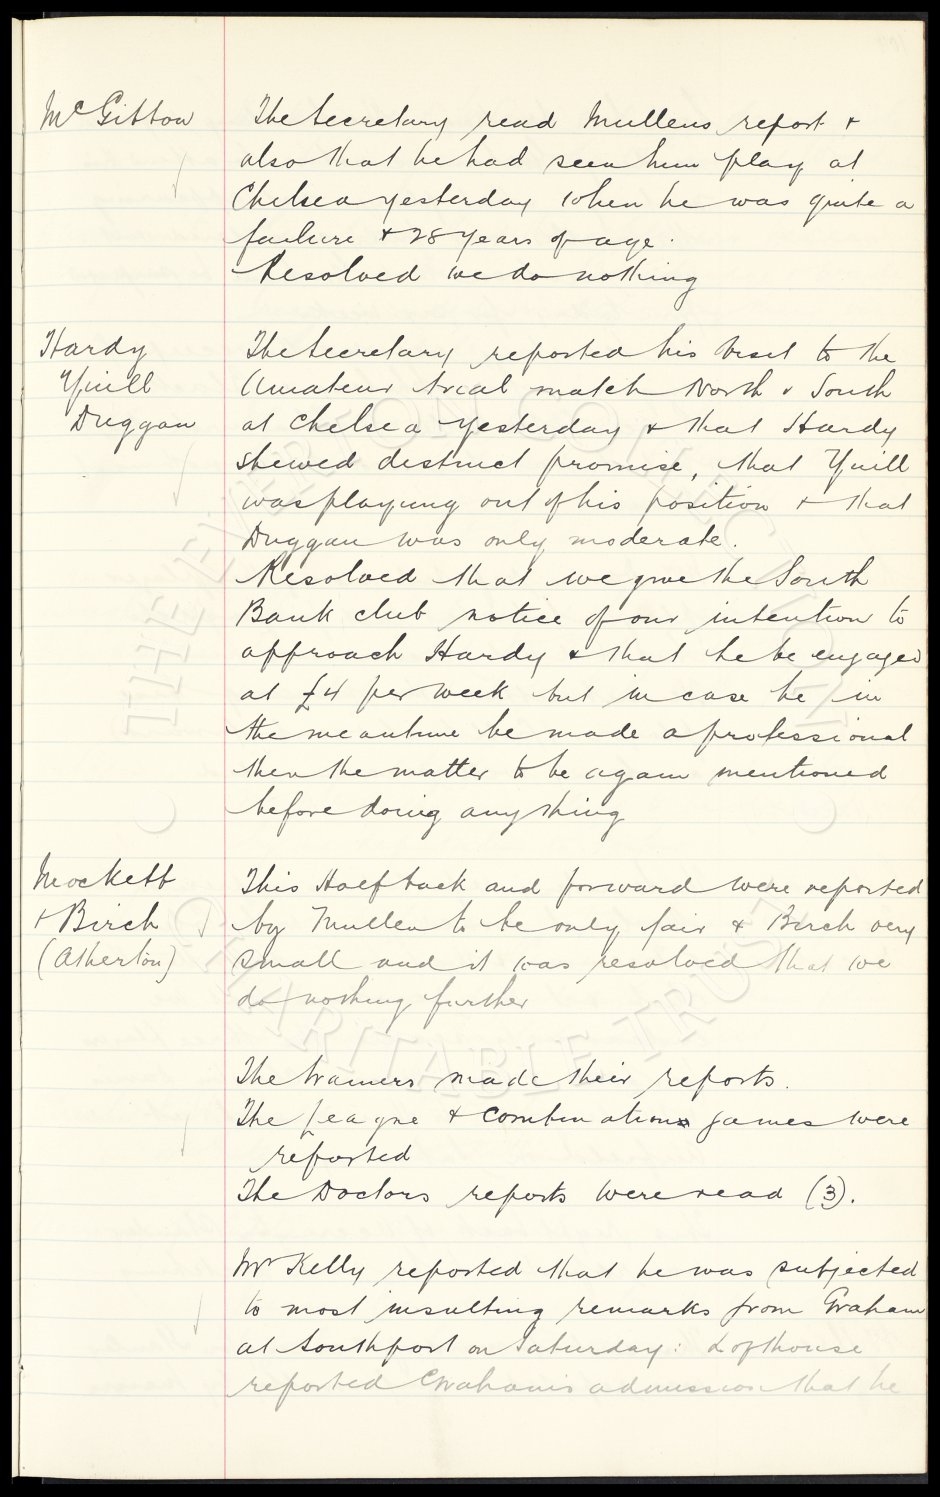 McGitton
The Secretary read Mullens report &
also that he had seen him play at
Chelsea yesterday when he was quite a
failure & 28 years of age.
Resolved we do nothing
Hardy
Yuill
Duggan
The Secretary reported his visit to the
Amateur trial match North v South
at Chelsea yesterday & that Hardy
shewed distinct promise, that Yuill
was playing out of his position & that
Duggan was only moderate.
Resolved that we give the South
Bank club notice of our intention to
approach Hardy & that he be engaged
at £4 per week but in case he in
the meantime be made a professional
then the matter to be again mentioned
before doing anything
Mockett
& Birch
(Atherton)
This Half back and forward were reported
by Mullen to be only fair & Birch very
small and it was resolved that we
do nothing further
The trainers made their reports.
The League & Combination games were
reported
The Doctors reports were read (3).
Mr Kelly reported that he was subjected
to most insulting remarks from Graham
at Southport on Saturday: Lofthouse
reported Graham's admission that he
THE EVERTON COLLECTION
CHARITABLE TRUST